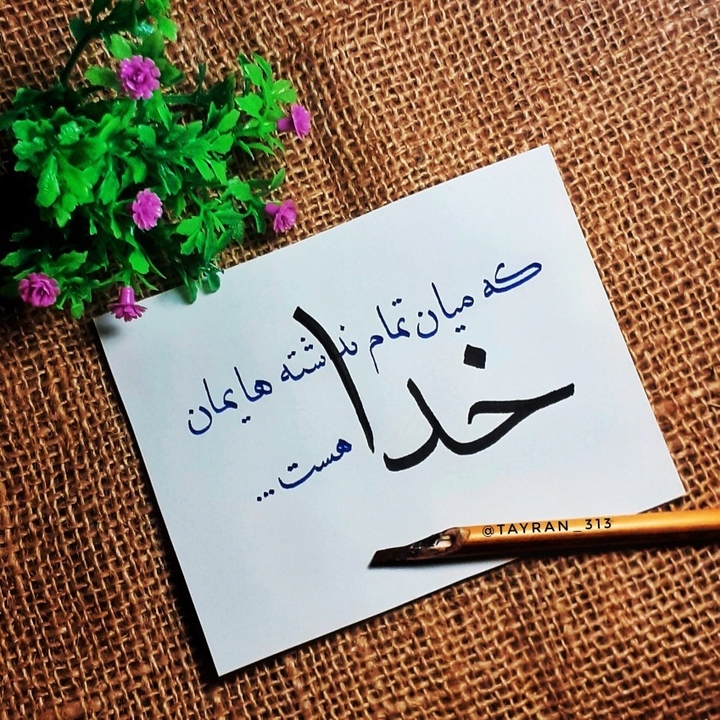 که میان تمام نداشته هایمان
خدا
هست...
@TAYRAN_313